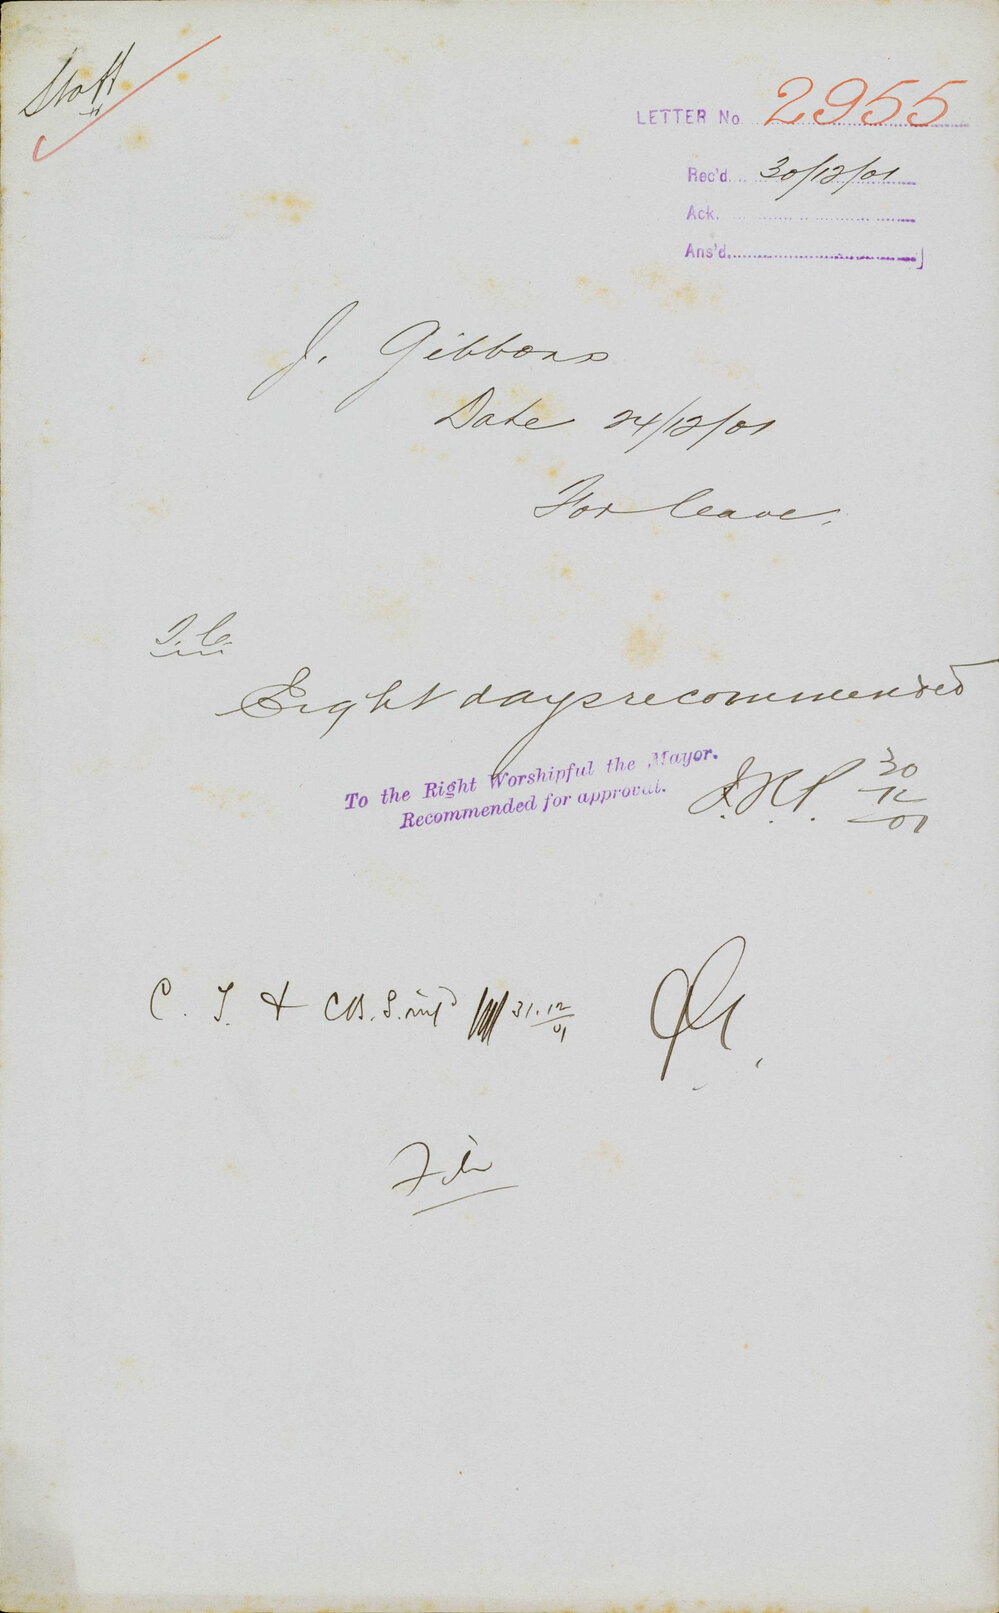 Staff
LETTER No 2955
Rec'd. 30/12/01
Ack.
Ans'd.
J. Gibbons
Date 24/12/01
For leave.
T. C.
Eight days recommended
To the Right Worshipful the Mayor.
Recommended for approval.
30
12
01
C. T. & C.B.S. 31.12
01
File